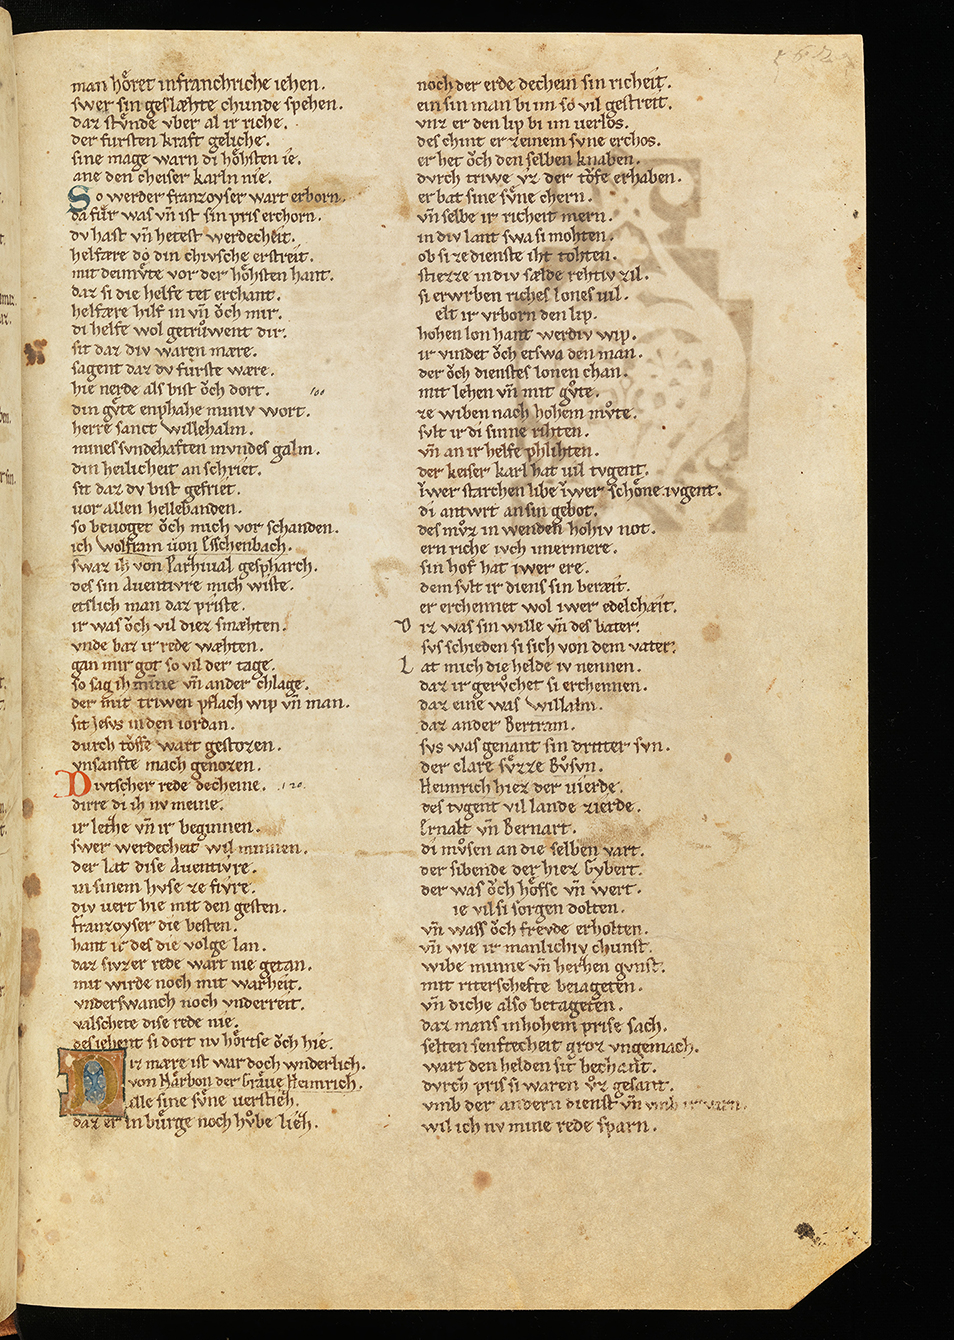 man hôret infranchriche iehen.
swer sin geslæhte chunde spehen.
daz stůnde vber al ir riche.
der fursten kraft geliche.
sine mage warn di hôhsten ie.
ane den cheiser karln nie.
So werder franzoyser wart erborn.
da fůr was vn̄ ist sin pris erchorn.
dv hast vn̄ hetest werdecheit.
helfære do din chivsche erstreit.
mit deimůte vor der hôhsten hant.
daz si die helfe tet erchant.
helfære hilf in vn̄ ôch mir.
di helfe wol getrůwent dir.
sit daz div waren mære.
sagent daz dv fůrste wære.
hie nerde als bist ôch dort.
din gůte enphahe miniv wort.
herre sanct willehalm.
mines svndehaften mvndes galm.
din heilicheit an schriet.
sit daz dv bist gefriet.
uor allen hellebanden.
so beuoget ôch mich vor schanden.
ich wolfram uon Esschenbach.
swaz ih von Parhiual gespharch.
des sin Auentivre mich wiste.
etslich man daz priste.
ir was ôch vil diez smæhten.
vnde baz ir rede wæhten.
gan mir got so vil der tage.
so sag ih mine vn̄ ander chlage.
der mit triwen pflach wip vn̄ man.
sit Jesvs in den iordan.
durch tôffe wart gestozen.
vnsanfte mach genozen.
Divtscher rede decheine.
dirre di ih nv meine.
ir lethe vn̄ ir beginnen.
swer werdecheit wil minnen.
der lat dise Auentivre.
in sinem hvse ze fivre.
div uert hie mit den gesten.
franzoyser die besten.
hant ir des die volge lan.
daz sivzer rede wart nie getan.
mit wirde noch mit warheit.
vnderswanch noch vnderreit.
valschete dise rede nie.
des iehent si dort nv hôrtse ôch hie.
Diz mære ist war doch wnderlich.
von Narbon der Graue Heinrich.
alle sine sůne verstieh.
daz er in bůrge noch hůbe lieh.
noch der erde dechein sin richeit.
ein sin man bi im so vil gestreit.
vnz er den lip bi im uerlos.
des chint er zeinem svne erchos.
er het ôch den selben knaben.
dvrch triwe vz der tôfe erhaben.
er bat sine sůne chern.
vn̄ selbe ir richeit mern.
in div lant swa si mohten.
ob si ze dienste iht tohten.
stiezze in div sælde rehtiv zil.
si erwrben riches lones uil.
elt ir vrborn den lip.
hohen lon hant werdiv wip.
ir vindet ôch etswa den man.
der ôch dienstes lonen chan.
mit lehen vn̄ mit gůte.
ze wiben nach hohem můte.
svlt ir di sinne rihten.
vn̄ an ir helfe phlihten.
der keiser karl hat uil tvgent.
iwer starchen libe iwer schône ivgent.
di antwrt an sin gebot.
des můz in wenden hohiv not.
ern riche ivch immermere.
sin hof hat iwer ere.
dem svlt ir diens sin beræit.
er erchennet wol iwer edelchæit.
Diz was sin wille vn̄ des bater.
svs schieden si sich von dem vater.
Lat mich die helde iv nennen.
daz ir gerůchet si erchennen.
daz eine was willalm.
daz ander Bertram.
svs was genant sin dritter svn.
der clare sůzze Bůsvn.
Heinrich hiez der uierde.
des tvgent vil lande zierde.
Ernalt vn̄ Bernart.
di můsen an die selben vart.
der sibende der hiez Gybert.
der was ôch hôfsc vn̄ wert.
ie vil si sorgen dolten.
vn̄ wasz ôch frevde erholten.
vn̄ wie ir manlichiv chunst.
wibe minne vn̄ herhen gvnst.
mit riterschefte beiageten.
vn̄ diche also betageten.
daz mans in hohem prise sach.
selten senftecheit groz vngemach.
wart den helden sit bechant.
dvrch pris si waren vz gesant.
vmb der andern dienst vn̄ vmb ir varn.
wil ich nv mine rede sparn.